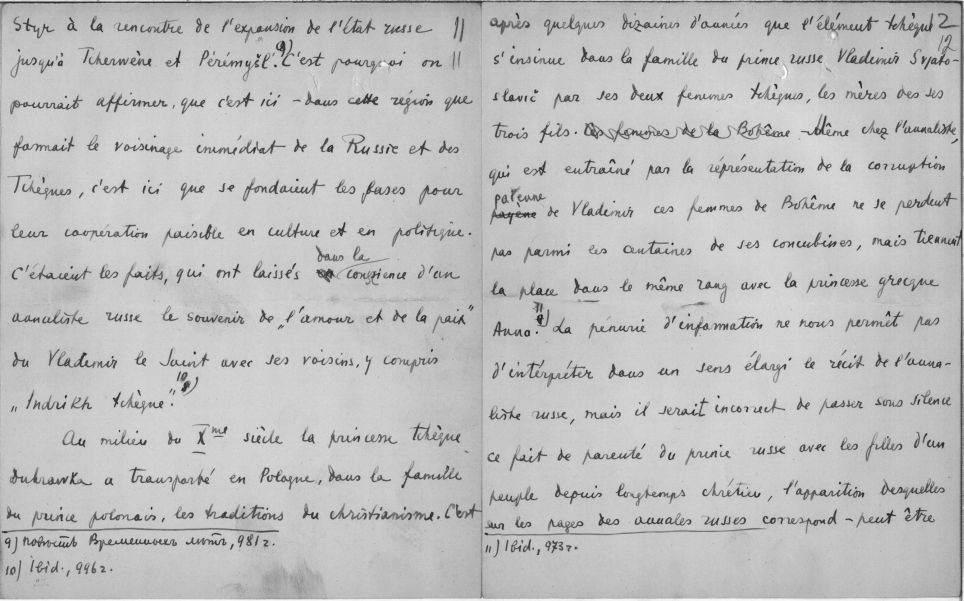 Styr à la rencontre de l'expansion de l'Etat russe 11
jusqu'à Tcherwène et Pérémyšl'. 9) C'est pourquoi on 11
pourrait affirmer, que c'est ici – dans cette région que
formait le voisinage immédiat de la Russie et des
Tchèques, c'est ici que se fondaient les bases pour
leur coopération paisible en culture et en politique.
C'étaient les faits, qui ont laissés dans la conscience d'un
annaliste russe le souvenir de „l'amour et de la paix"
du Vladimir le Saint avec ses voisins, y compris
„Indrikh tchèque". 10)
Au milieu du Xme siècle la princesse tchèque
Dubrawka a transporté en Pologne, dans la famille
du prince polonais, les traditions du christianisme. C'est
9) Повѣсть Временныхъ лѣтъ, 981 г.
10) Ibid., 996 г.
2
12
après quelques dizaines d'années que l'élément tchèque
s'insinue dans la famille du prince russe Vladimir Svjato-
slavič par ses deux femmes tchèques, les mères des ses
trois fils. Les femmes de la Bohême – Même chez l'annaliste,
qui est entraîné par la réprésentation de la corruption
païenne
payene de Vladimir ces femmes de Bohême ne se perdent
pas parmi les centaines de ses concubines, mais tiennent
la place dans le même rang avec la princesse grecque
Anna. 11) La pénurie d'information ne nous permêt pas
d'intérpréter dans un sens élargi le récit de l'anna-
liste russe, mais il serait incorrect de passer sous silence
ce fait de parenté du prince russe avec les filles d'un
peuple depuis longtemps chrétien, l'apparition desquelles
sur les pages des annales russes correspond – peut être
11) Ibid., 973 г.